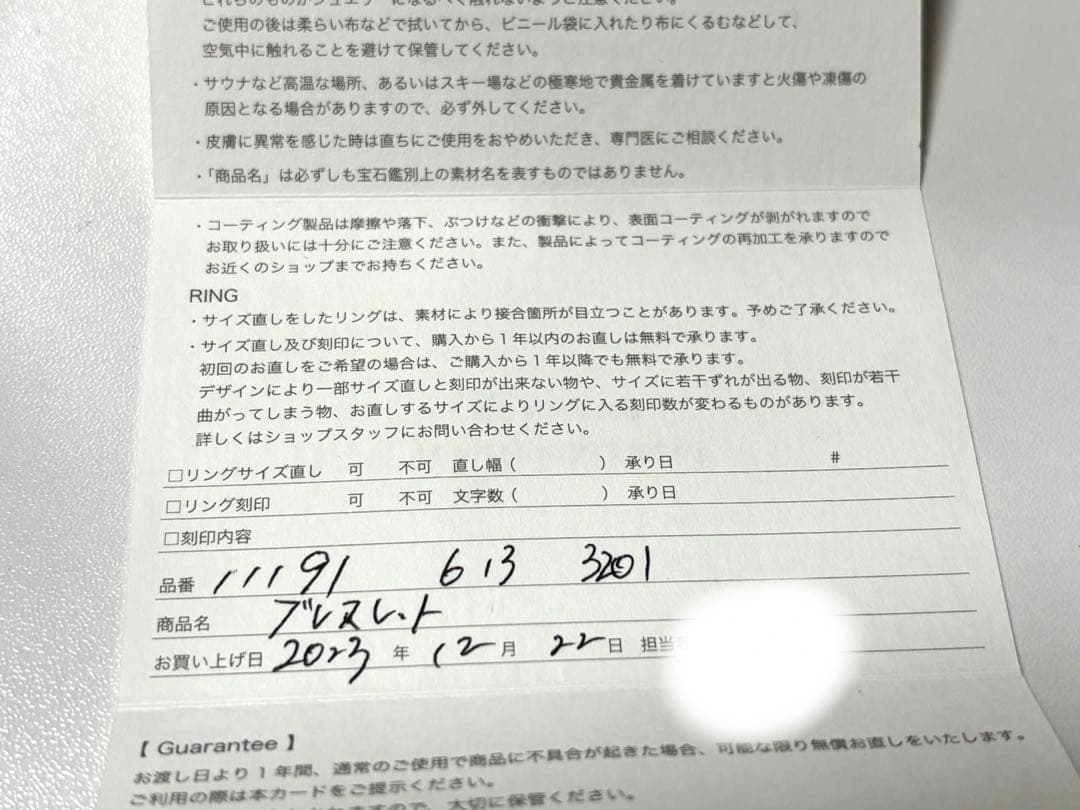 これらのものがジュエリーになるべく触れないようご注意ください。
ご使用の後は柔らい布などで拭いてから、ビニール袋に入れたり布にくるむなどして、
空気中に触れることを避けて保管してください。
・サウナなど高温な場所、あるいはスキー場などの極寒地で貴金属を着けていますと火傷や凍傷の
原因となる場合がありますので、必ず外してください。
・皮膚に異常を感じた時は直ちにご使用をおやめいただき、専門医にご相談ください。
・「商品名」は必ずしも宝石鑑別上の素材名を表すものではありません。
・コーティング製品は摩擦や落下、ぶつけなどの衝撃により、表面コーティングが剥がれますので
お取り扱いには十分にご注意ください。また、製品によってコーティングの再加工を承りますので
お近くのショップまでお持ちください。
RING
・サイズ直しをしたリングは、素材により接合箇所が目立つことがあります。予めご了承ください。
・サイズ直し及び刻印について、購入から1年以内のお直しは無料で承ります。
初回のお直しをご希望の場合は、ご購入から1年以降でも無料で承ります。
デザインにより一部サイズ直しと刻印が出来ない物や、サイズに若干ずれが出る物、刻印が若干
曲がってしまう物、お直しするサイズによりリングに入る刻印数が変わるものがあります。
詳しくはショップスタッフにお問い合わせください。
□リングサイズ直し 可 不可 直し幅( ) 承り日 #
□リング刻印 可 不可 文字数( ) 承り日
□刻印内容
品番 11191 613 3201
商品名 ブレスレット
お買い上げ日 2023 年 12 月 22 日 担当
【 Guarantee 】
お渡し日より1年間、通常のご使用で商品に不具合が起きた場合、可能な限り無償お直しをいたします。
ご利用の際は本カードをご提示ください。
ますので、大切に保管ください。